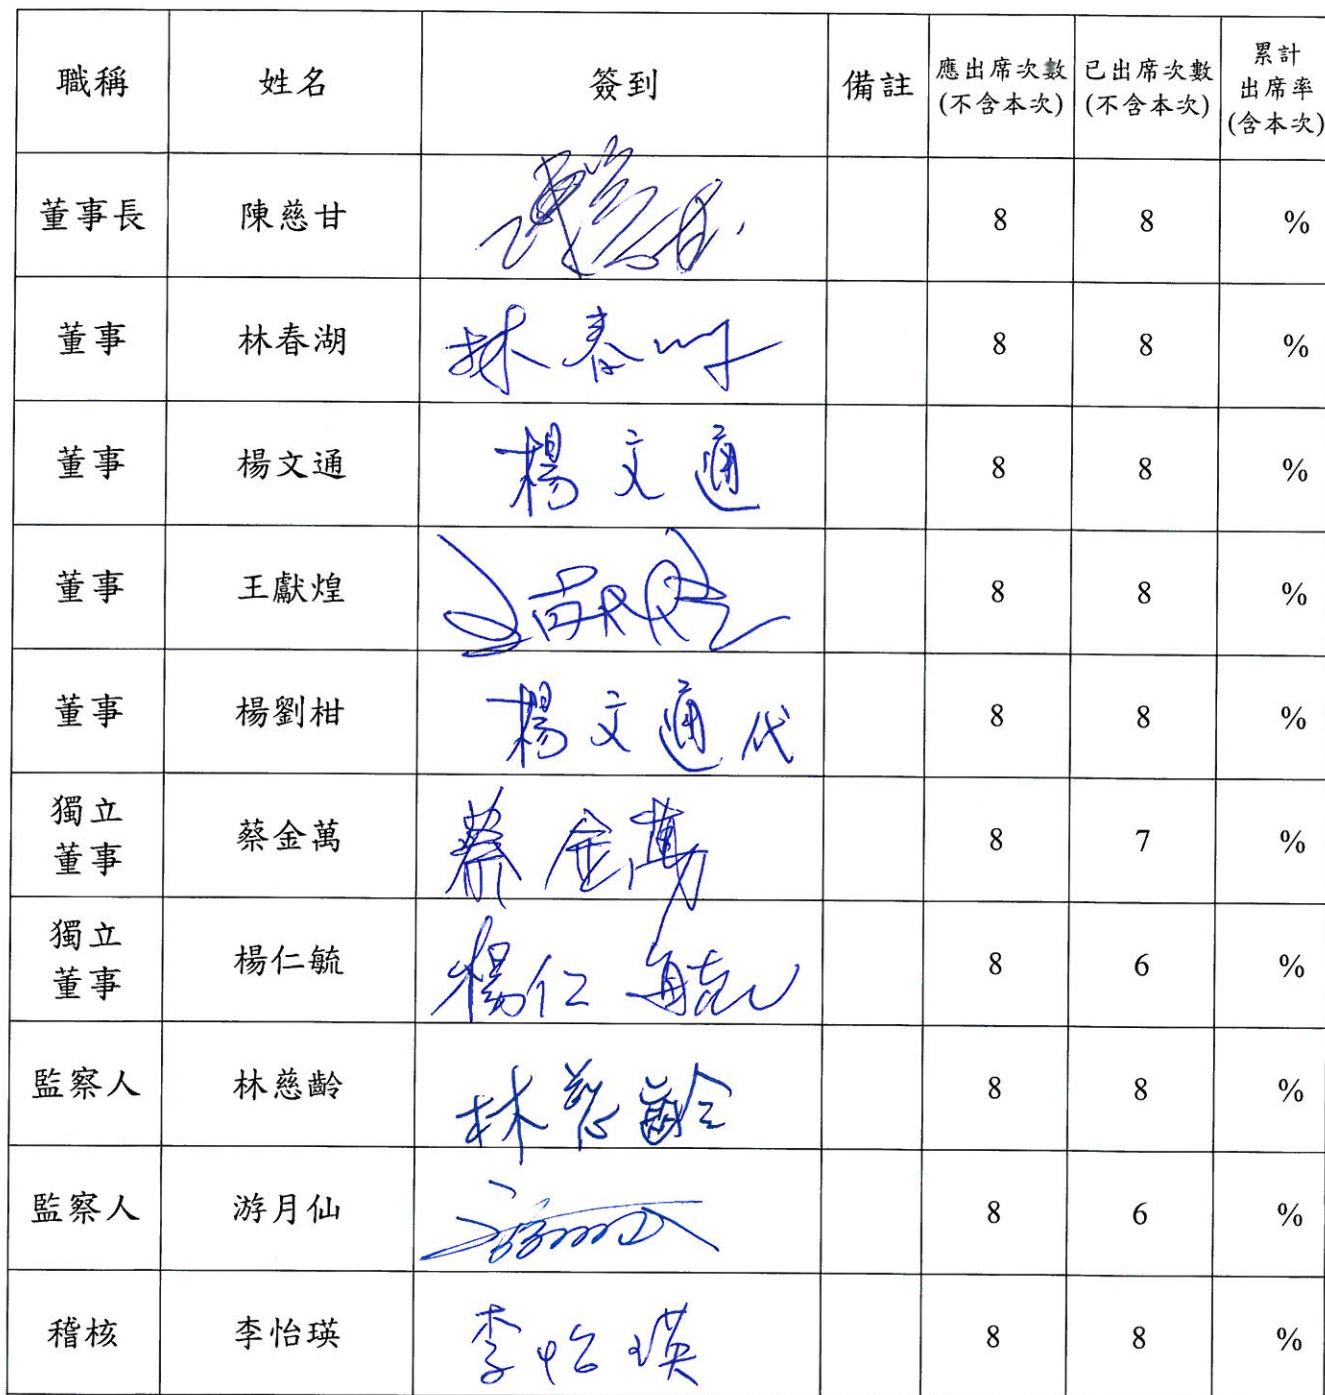 職稱 姓名 簽到 備註 應出席次數(不含本次) 已出席次數(不含本次) 累計出席率(含本次)
董事長 陳慈甘 陳慈甘 8 8 %
董事 林春湖 林春 8 8 %
董事 楊文通 楊文通 8 8 %
董事 王獻煌 王獻煌 8 8 %
董事 楊劉柑 楊文通代 8 8 %
獨立董事 蔡金萬 蔡金萬 8 7 %
獨立董事 楊仁毓 楊仁毓 8 6 %
監察人 林慈齡 林慈齡 8 8 %
監察人 游月仙 8 6 %
稽核 李怡瑛 李怡瑛 8 8 %